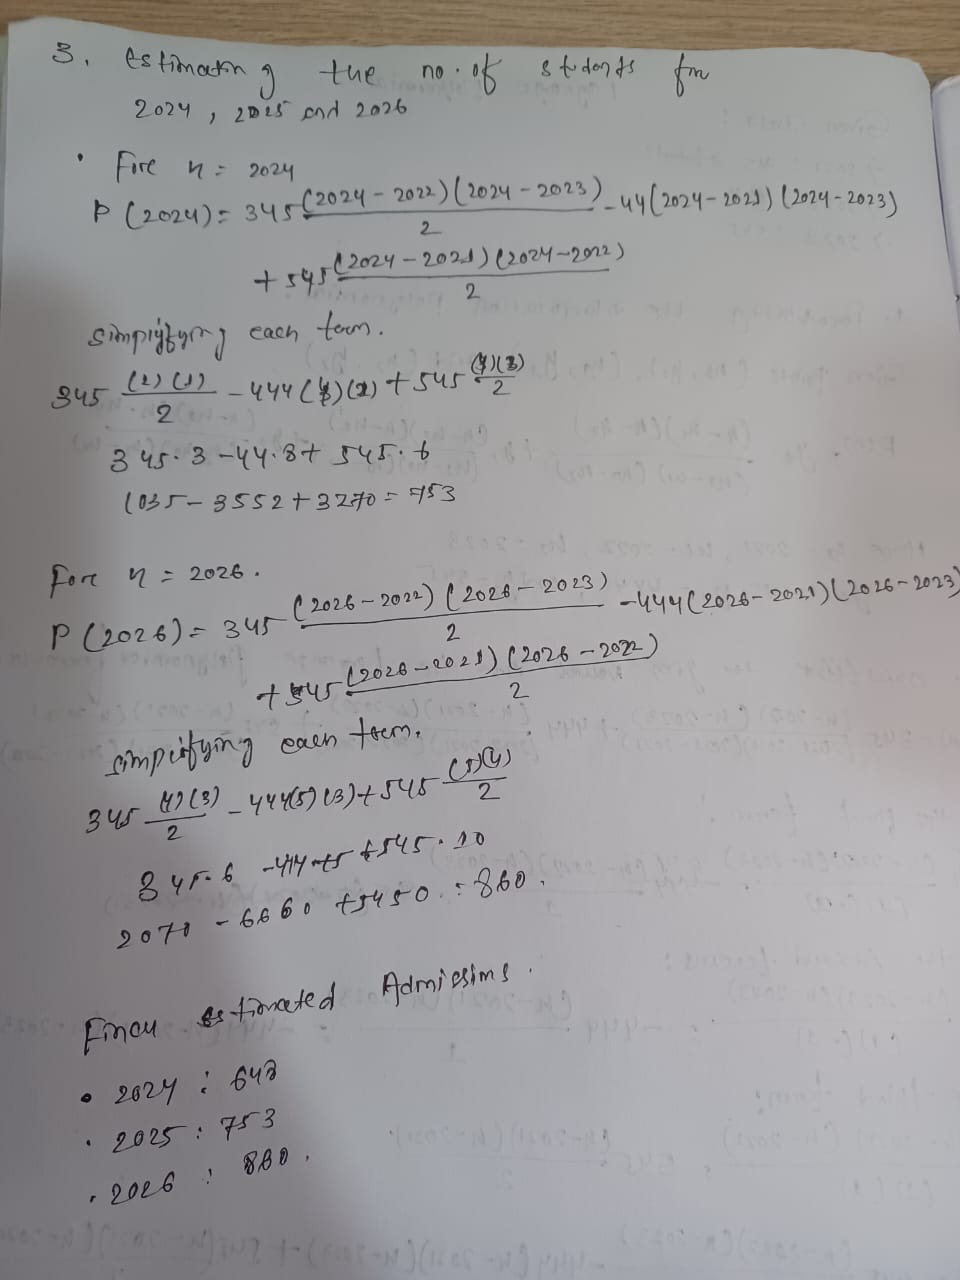 3. estimating the no. of students for
2024, 2025 and 2026
• Fore n = 2024
P(2024) = 345 (2024 - 2022)(2024 - 2023)/2 - 44(2024 - 2021)(2024 - 2023)
+ 545 (2024 - 2021)(2024 - 2022)/2
simplifying each term.
345 (2)(1)/2 - 444()(2) + 545 ()(3)/2
345 · 3 - 44 · 8 + 545 · 6
1035 - 3552 + 3270 = 753
Fore n = 2026.
P(2026) = 345 (2026 - 2022)(2026 - 2023)/2 - 444(2026 - 2021)(2026 - 2023)
+ 545 (2026 - 2021)(2026 - 2022)/2
simplifying each term.
345 (4)(3)/2 - 444(5)(3) + 545 (5)(4)/2
345 · 6 + 545 · 10
2070 - 6660 + 5450 = 860.
estimated Admissions.
• 2024 : 643
• 2025 : 753
• 2026 : 860.